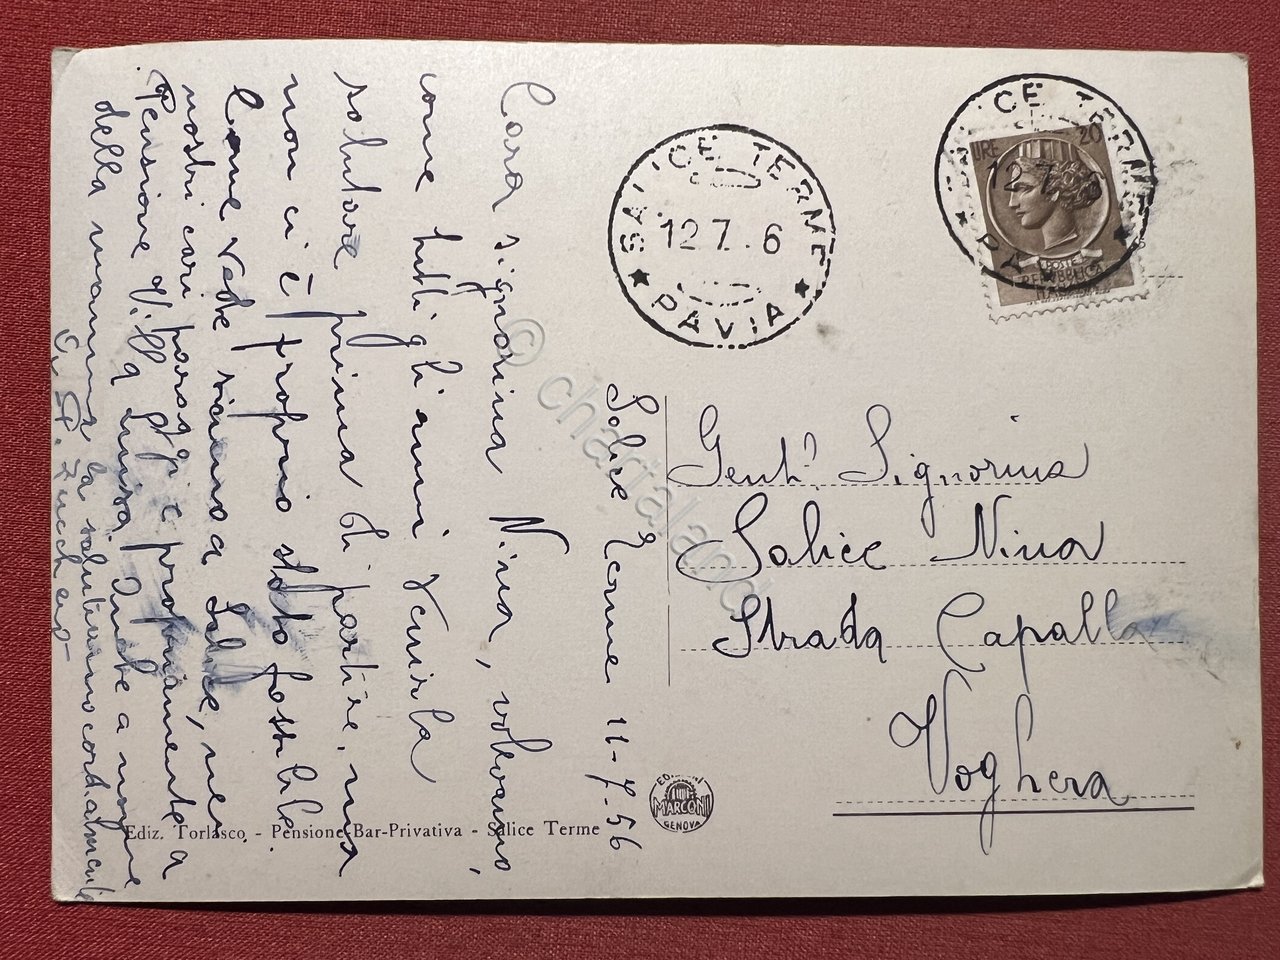 Salice Terme 11-7-56
Cara signorina Nina, volevamo,
come tutti gli anni venirla
salutare prima di partire, ma
non ci è proprio stato possibile.
Come vede siamo a Salice, nei
nostri cari paraggi e propriamente a
Pensione Villa Luisa. Anche a nome
della mamma la salutiamo cordialmente
Zucchero
SALICE TERME
12 7. 6
PAVIA
SALICE TERME
12 7 6
PAVIA
LIRE 20
POSTE
REPUBBLICA
ITALIANA
Gent. Signorina
Salice Nina
Strada Capalla
Voghera
EDIZIONI
MARCONI
GENOVA
Ediz. Torlasco - Pensione-Bar-Privativa - Salice Terme
© charialand